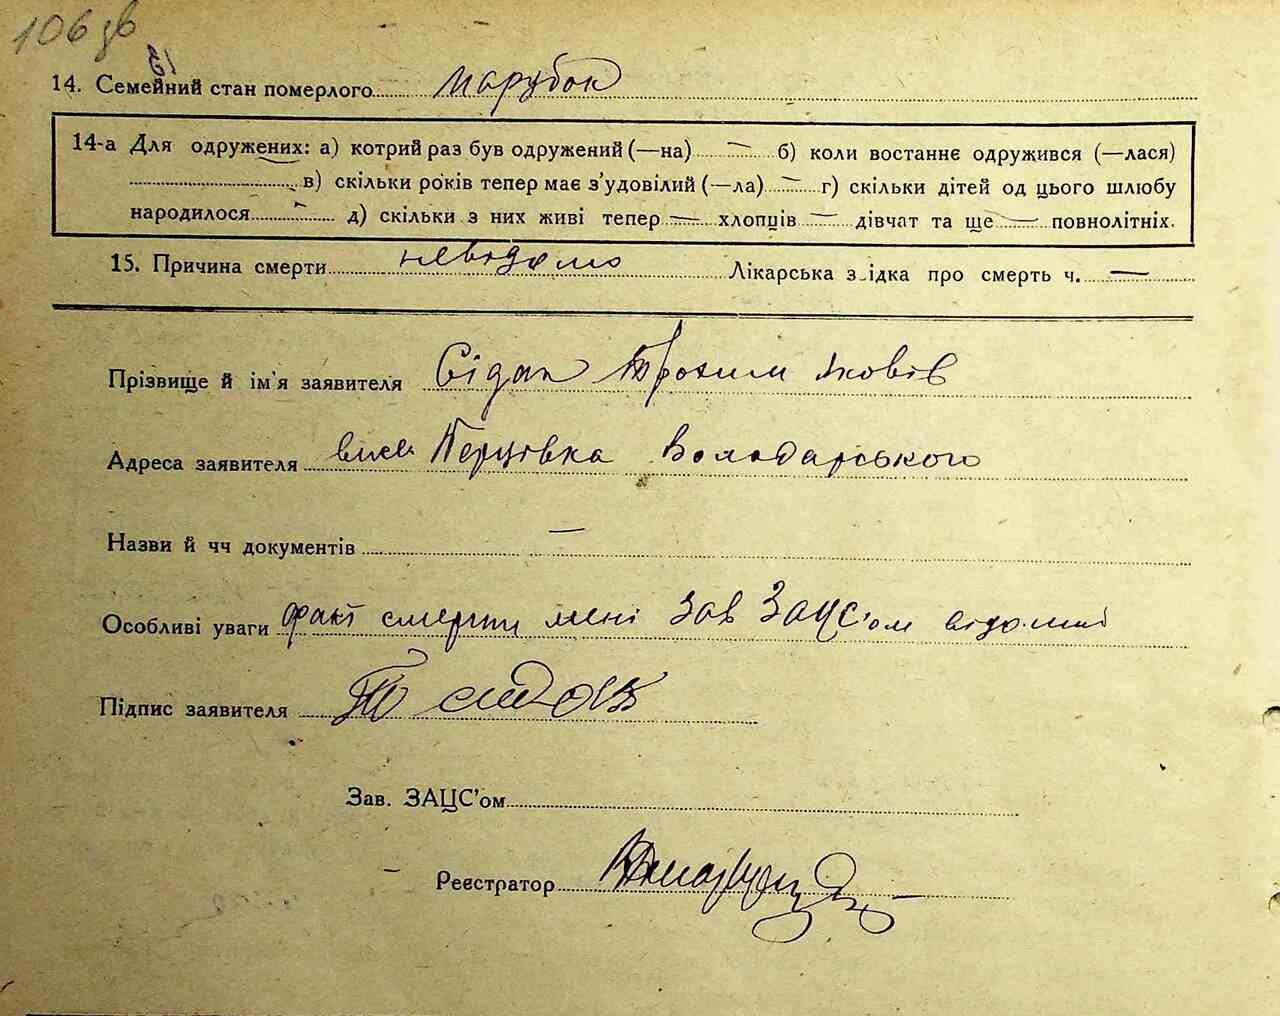 106 зв
14. Семейний стан померлого парубок
14-а Для одружених: а) котрий раз був одружений (—на) — б) коли востаннє одружився (—лася)
в) скільки років тепер має з'удовілий (—ла) — г) скільки дітей од цього шлюбу
народилося — д) скільки з них живі тепер — хлопців — дівчат та ще — повнолітніх.
15. Причина смерти невідомо Лікарська з ідка про смерть ч. —
Прізвище й ім'я заявителя Сідак Трохим Яковів
Адреса заявителя Перцівка Володарського
Назви й чч документів —
Особливі уваги факт смерти мені Зав ЗАЦС'ом відомий
Підпис заявителя
Зав. ЗАЦС'ом
Реєстратор